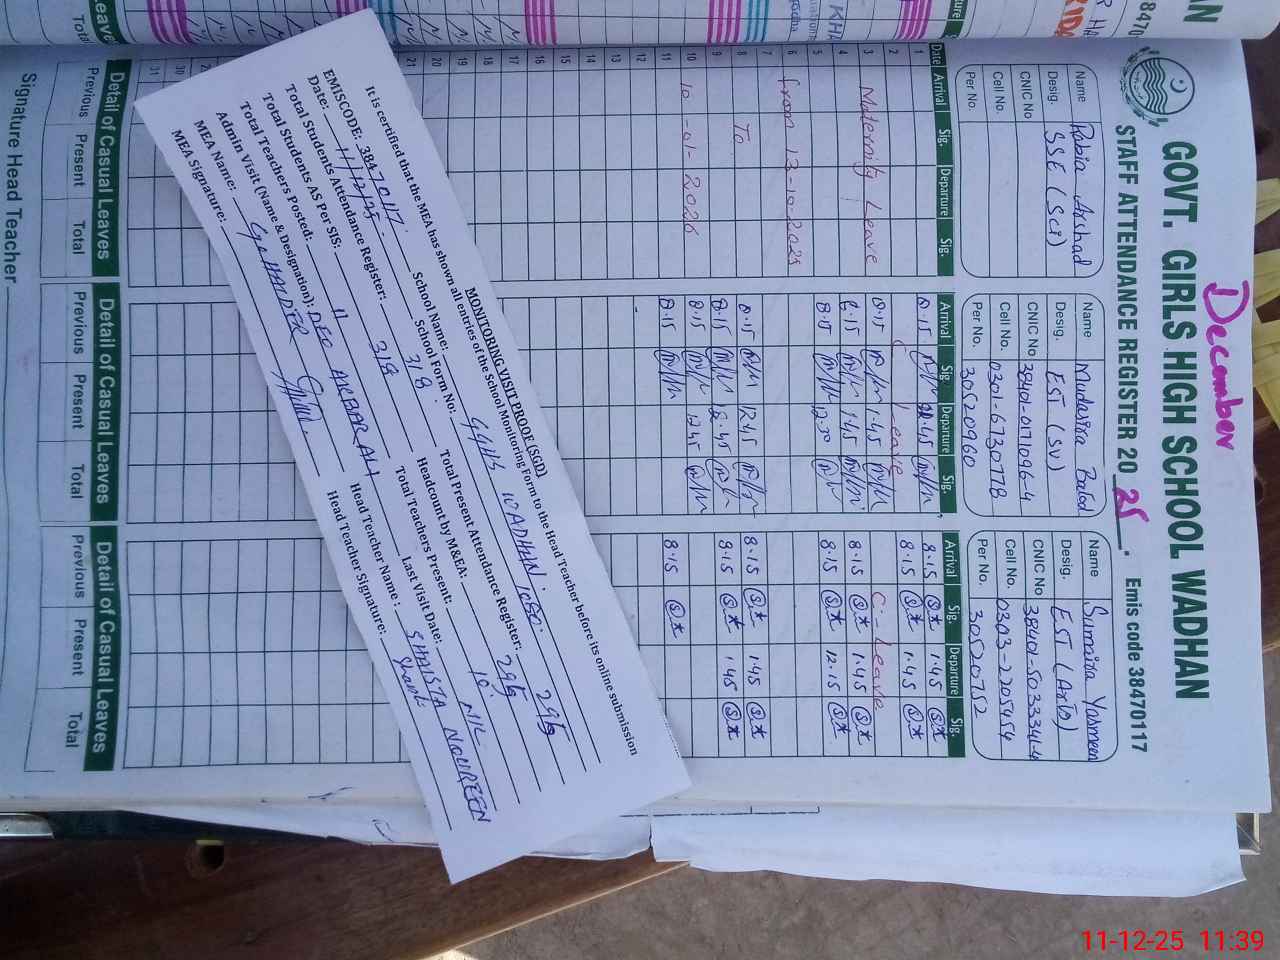 December
GOVT. GIRLS HIGH SCHOOL WADHAN
STAFF ATTENDANCE REGISTER 20 25 . Emis code 38470117
Name Rabia Arshad
Desig. SSE (Sci)
CNIC No
Cell No.
Per No.
Name Mudasira Batool
Desig. EST (SV)
CNIC No 38401-0171096-4
Cell No. 0301-6730778
Per No. 30520960
Name Sumira Yasmeen
Desig. EST (Arts)
CNIC No 38401-5033334-4
Cell No. 0303-2205454
Per No. 30520752
Date Arrival Sig. Departure Sig. Arrival Sig. Departure Sig. Arrival Sig. Departure Sig.
1 8.15 12.45 8.15 1.45
2 C. Leave 8.15 1.45
3 Maternity Leave 8.15 1.45 C-Leave
4 8.15 1.45 8.15 1.45
5 8.15 12.30 8.15 12.15
6 from 13-10-2025
7
8 To 8.15 12.45 8.15 1.45
9 8.15 12.45 8.15 1.45
10 10-01-2026 8.15 12.45
11 8.15 8.15
12
13
14
15
16
17
18
19
20
21
29
30
31
Detail of Casual Leaves Detail of Casual Leaves Detail of Casual Leaves
Previous Present Total Previous Present Total Previous Present Total
Signature Head Teacher
MONITORING VISIT PROOF(SGD)
It is certified that the MEA has shown all entries of the School Monitoring Form to the Head Teacher before its online submission
EMISCODE: 38470117. School Name: GGHS WADHAN.
Date: 11/12/25. School Form No:
Total Students Attendance Register: 318 Total Present Attendance Register: 295
Total Students AS Per SIS: 318 Headcount by M&EA: 295
Total Teachers Posted: 11 Total Teachers Present: 10
Admin Visit (Name & Designation): DEO AKBAR ALI Last Visit Date: NIL
MEA Name: G. HAIDER Head Teacher Name: SHAISTA NOUREEN
MEA Signature: Head Teacher Signature:
11-12-25 11:39